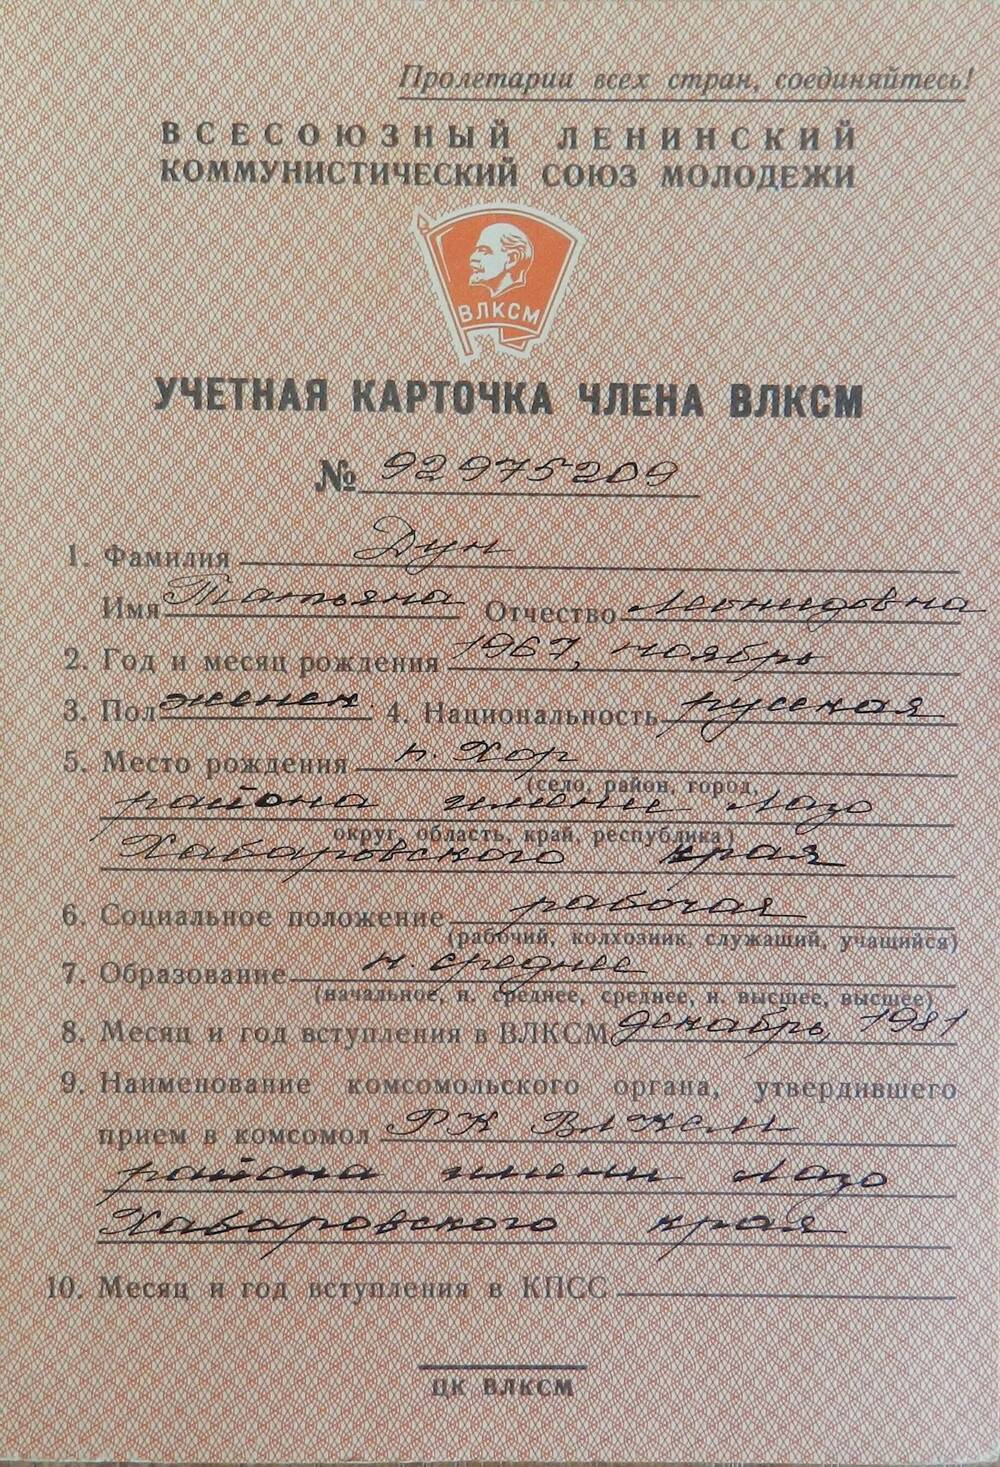 Пролетарии всех стран, соединяйтесь!
ВСЕСОЮЗНЫЙ ЛЕНИНСКИЙ
КОММУНИСТИЧЕСКИЙ СОЮЗ МОЛОДЕЖИ
ВЛКСМ
УЧЕТНАЯ КАРТОЧКА ЧЛЕНА ВЛКСМ
№ 92975209
1. Фамилия Дун
Имя Татьяна Отчество Леонидовна
2. Год и месяц рождения 1967, ноябрь
3. Пол женск. 4. Национальность русская
5. Место рождения п. Хор
(село, район, город,
района имени Лазо
округ, область, край, республика)
Хабаровского края
6. Социальное положение рабочая
(рабочий, колхозник, служащий, учащийся)
7. Образование н. среднее
(начальное, н. среднее, среднее, н. высшее, высшее)
8. Месяц и год вступления в ВЛКСМ декабрь, 1981
9. Наименование комсомольского органа, утвердившего
прием в комсомол РК ВЛКСМ
района имени Лазо
Хабаровского края
10. Месяц и год вступления в КПСС
ЦК ВЛКСМ